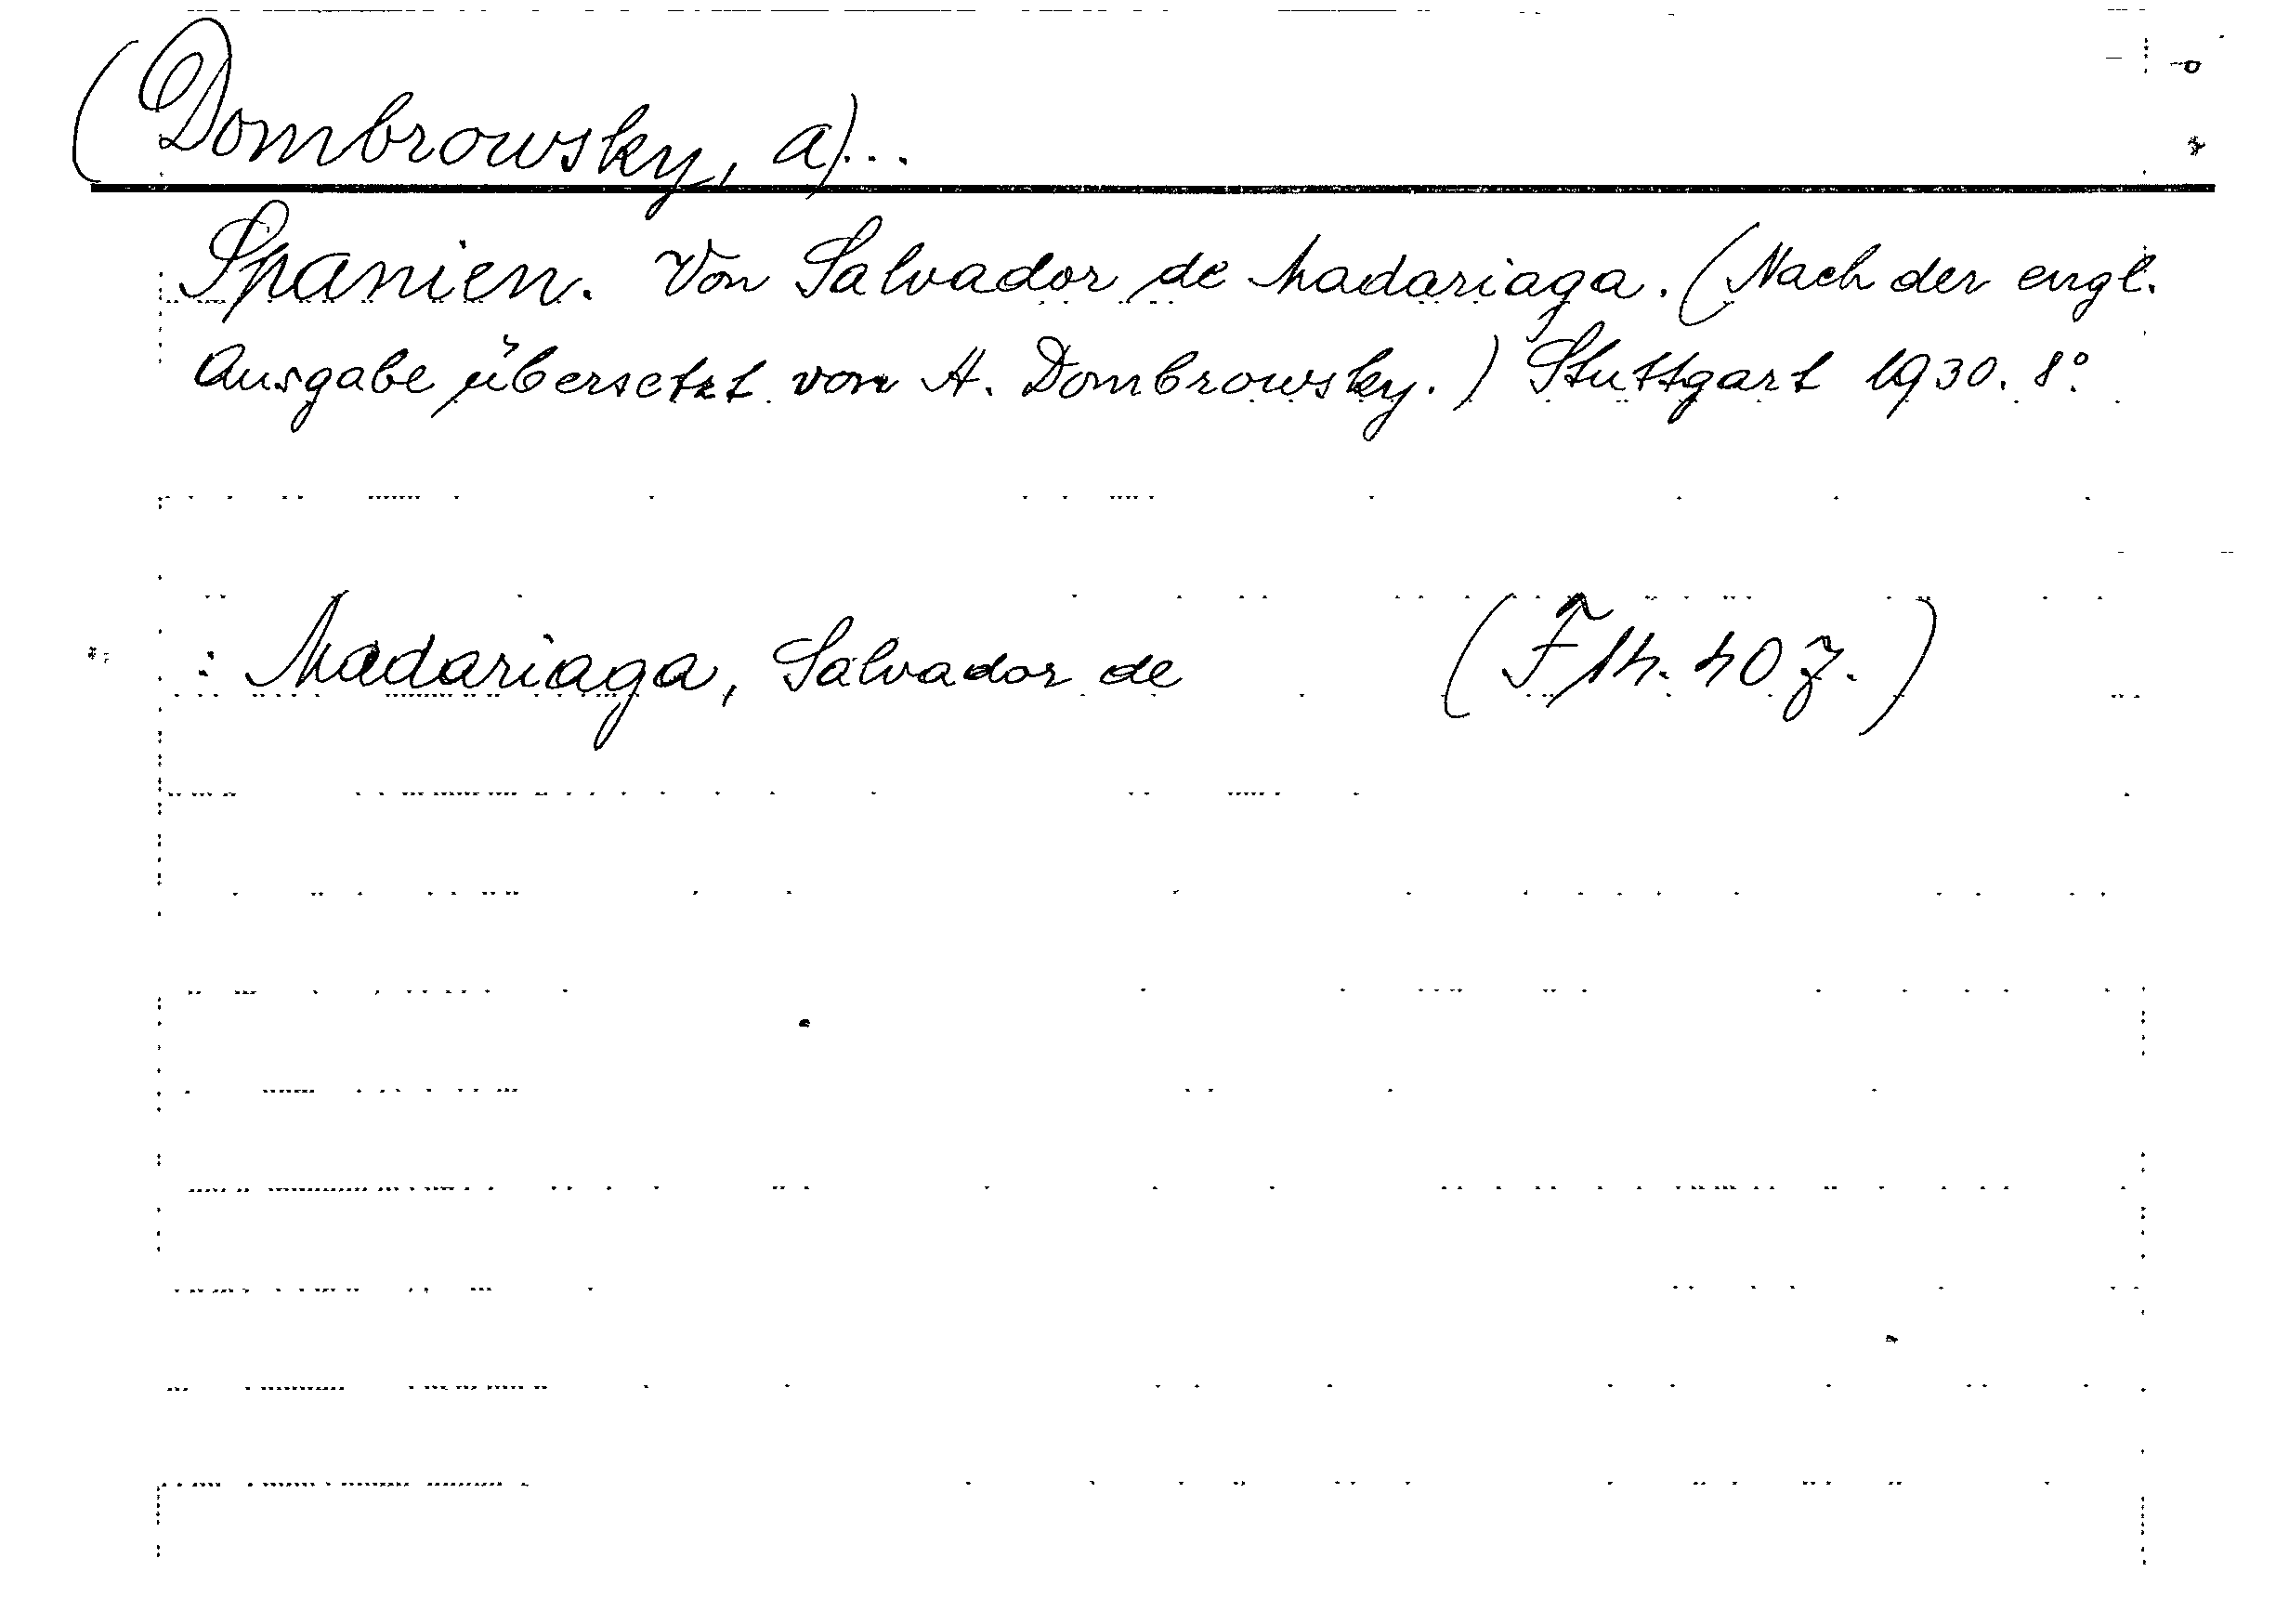 (Dombrowsky, A)...
Spanien. Von Salvador de Madariaga. (Nach der engl.
Ausgabe übersetzt von A. Dombrowsky.) Stuttgart 1930. 8°.
: Madariaga, Salvador de